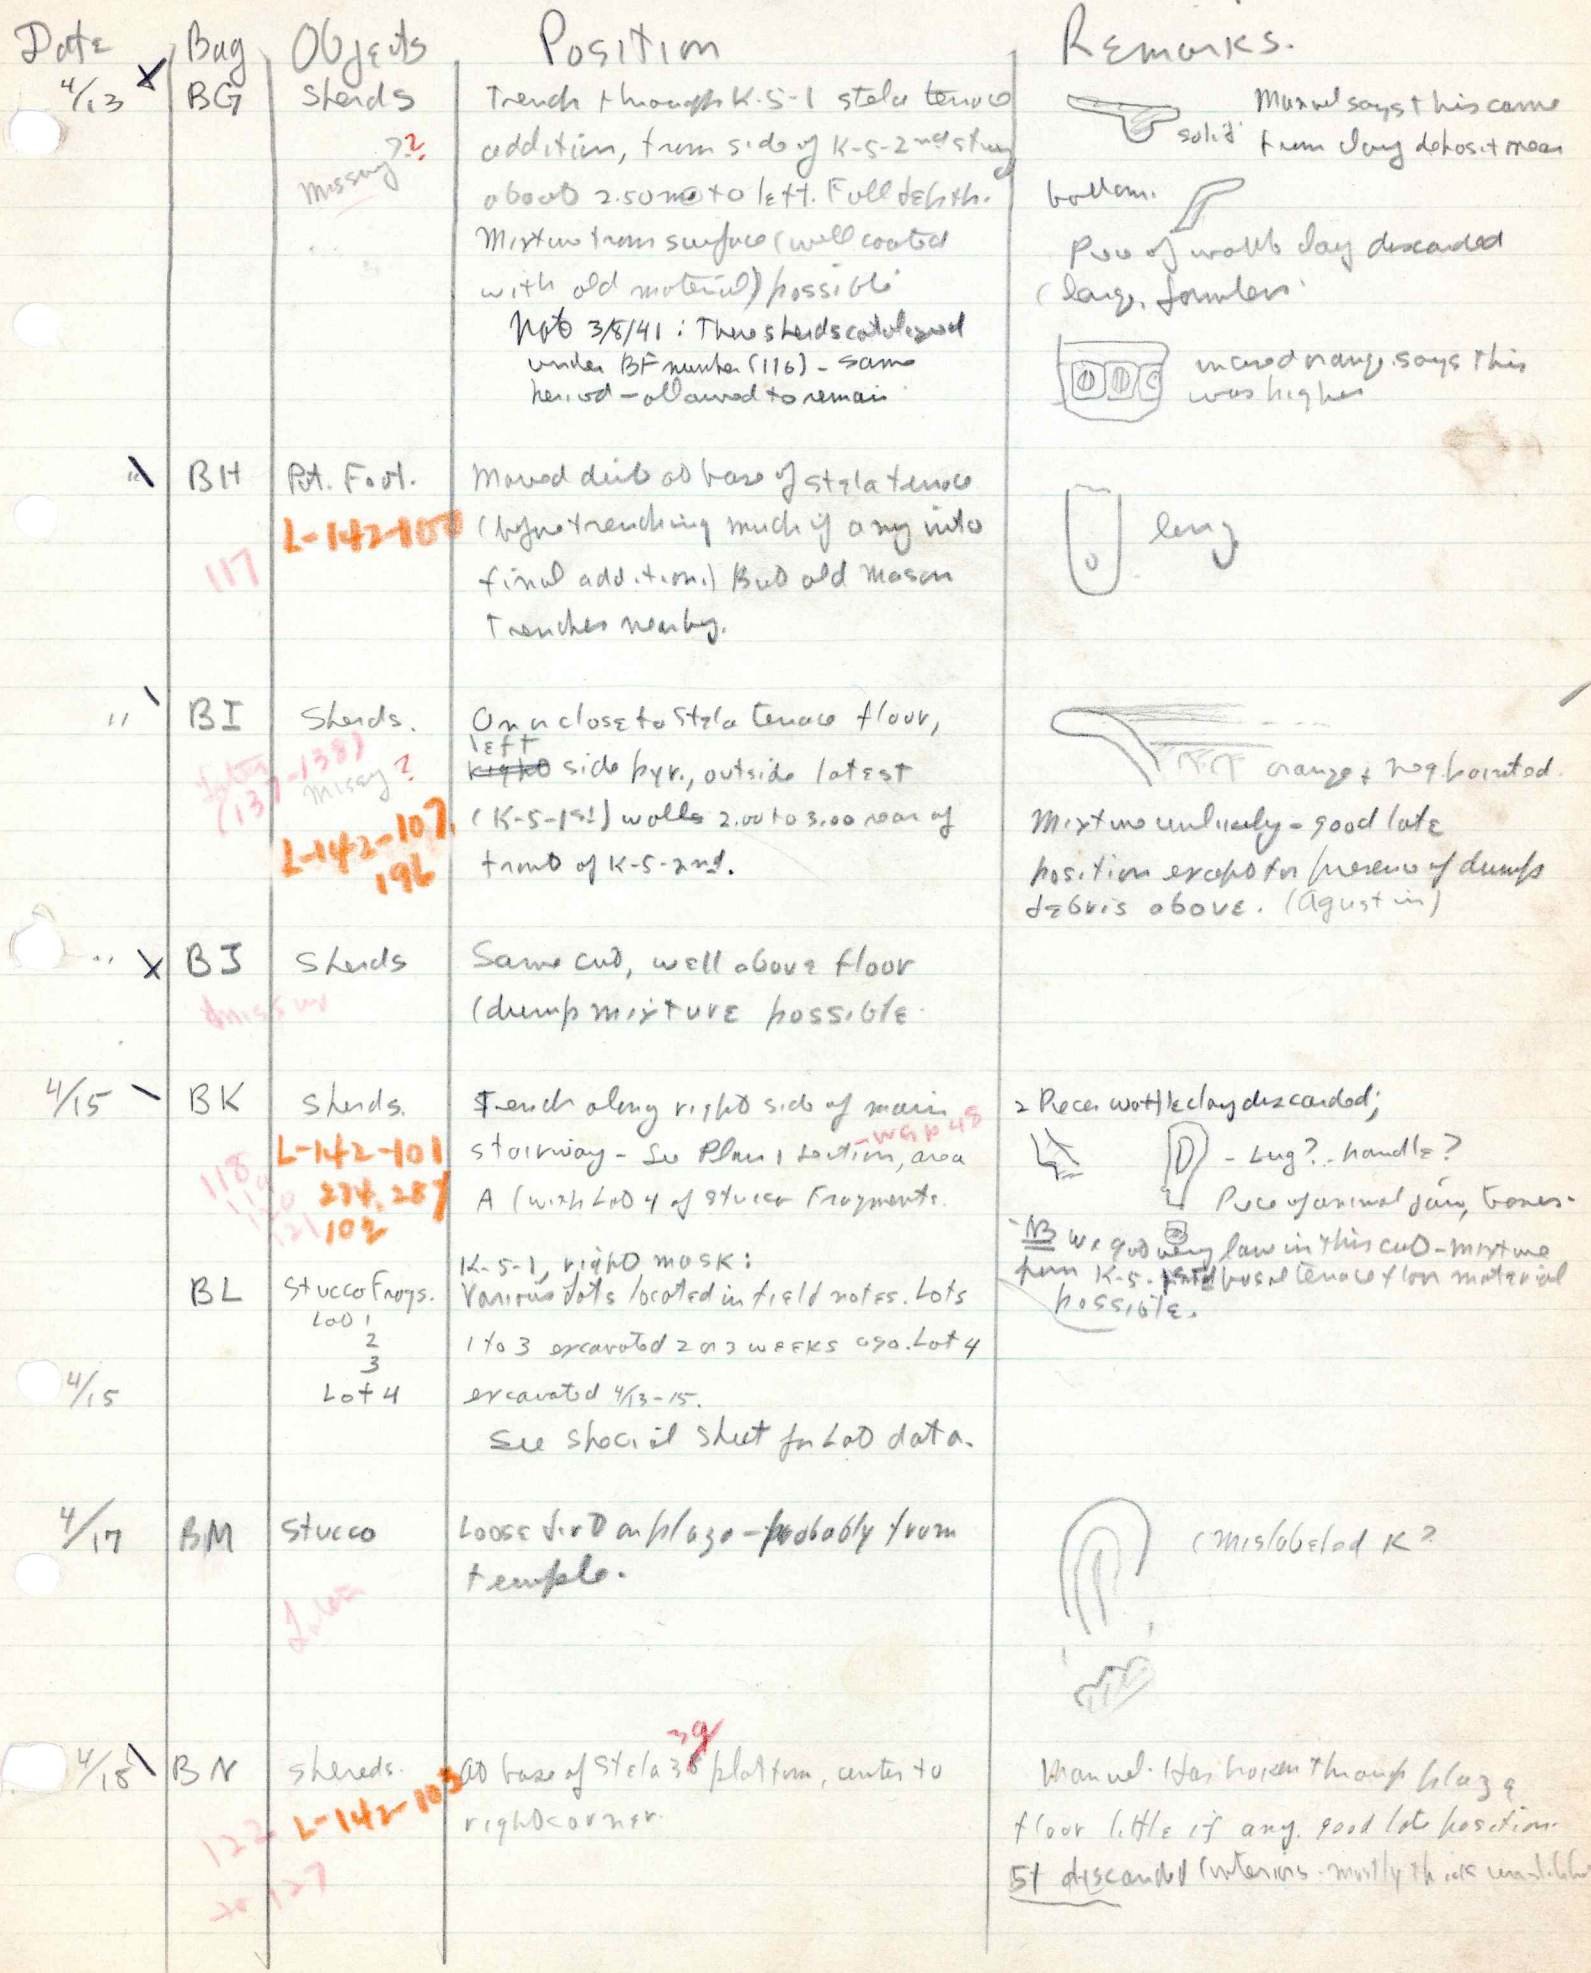 Date Bag Objects Position Remarks.
4/13 X BG Sherds
Missing ??
Trench through K-5-1 stela terrace
addition, from side of K-5-2nd
about 2.50 m to left. Full depth.
Mixture from surface (well coated
with old material) possible
Note 3/8/41: These sherds cataloged
under BF number (116) - same
period - allowed to remain
solid
Manuel says this came
from clay deposit near
bottom.
Piece of wattle clay discarded
says this
was higher
" BH Pot. Foot.
L-142-100
117
Moved dirt at base of stela terrace
(before trenching much if any into
final addition.) But old Mason
Trenches nearby.
long
" BI Sherds.
(137-138)
Missing ?
L-142-107,
196
On or close to Stela terrace floor,
left
right side pyr., outside latest
(K-5-1st) walls 2.00 to 3.00 rear of
front of K-5-2nd.
orange, neg painted.
Mixture unlikely - good late
position except for presence of dump
debris above. (Agustin)
" X BJ Sherds
missing
Same cut, well above floor
(dump mixture possible
4/15 BK Sherds.
L-142-101
274, 287
102
118
121
Trench along right side of main
stairway - See Plan, section, area
A (with Lot 4 of Stucco Fragments.
2 Pieces wattle clay discarded;
- Lug? - handle?
Piece of animal jaw, bones.
NB We got very low in this cut - mixture
from K-5-1st basal terrace floor material
possible.
BL Stucco Frags.
Lot 1
2
3
4/15 Lot 4
K-5-1, right mask:
Various lots located in field notes. Lots
1 to 3 excavated 2 or 3 weeks ago. Lot 4
excavated 4/13-15.
See special sheet for Lot data.
4/17 BM Stucco
Loose dirt on plaza - probably from
temple.
(Mislabeled K?
4/18 BN Shereds.
L-142-103
122
127
39
At base of Stela 38 platform, center to
right corner.
Manuel. Has broken through plaza
floor little if any. good late position.
51 discarded (interiors - mostly thick